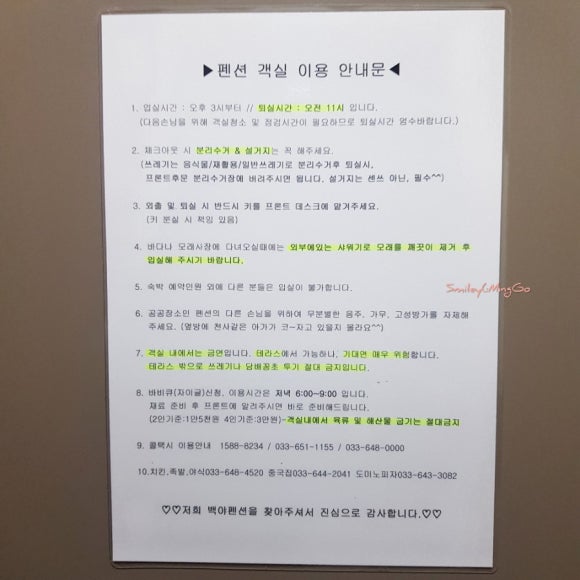 ▶펜션 객실 이용 안내문◀
1. 입실시간 : 오후 3시부터 // 퇴실시간 : 오전 11시 입니다.
(다음손님을 위해 객실청소 및 점검시간이 필요하므로 퇴실시간 엄수바랍니다.)
2. 체크아웃 시 분리수거 & 설거지는 꼭 해주세요.
(쓰레기는 음식물/재활용/일반쓰레기로 분리수거후 퇴실시,
프론트후문 분리수거장에 버려주시면 됩니다. 설거지는 센쓰 아닌, 필수^^)
3. 외출 및 퇴실 시 반드시 키를 프론트 데스크에 맡겨주세요.
(키 분실 시 책임 있음)
4. 바다나 모래사장에 다녀오실때에는 외부에있는 샤워기로 모래를 깨끗이 제거 후
입실해 주시기 바랍니다.
5. 숙박 예약인원 외에 다른 분들은 입실이 불가합니다.
6. 공공장소인 펜션의 다른 손님을 위하여 무분별한 음주, 가무, 고성방가를 자제해
주세요. (옆방에 천사같은 아가가 코~자고 있을지 몰라요^^)
7. 객실 내에서는 금연입니다. 테라스에서 가능하나, 기대면 매우 위험합니다.
테라스 밖으로 쓰레기나 담배꽁초 투기 절대 금지입니다.
8. 바비큐(자이글)신청, 이용시간은 저녁 6:00~9:00 입니다.
재료 준비 후 프론트에 알려주시면 바로 준비해드립니다.
(2인기준:1만5천원 4인기준:3만원)-객실내에서 육류 및 해산물 굽기는 절대금지
9. 콜택시 이용안내 1588-8234 / 033-651-1155 / 033-648-0000
10.치킨,족발,야식033-648-4520 중국집033-644-2041 도미노피자033-643-3082
♡♡저희 백야펜션을 찾아주셔서 진심으로 감사합니다.♡♡
SmileyGMingGo